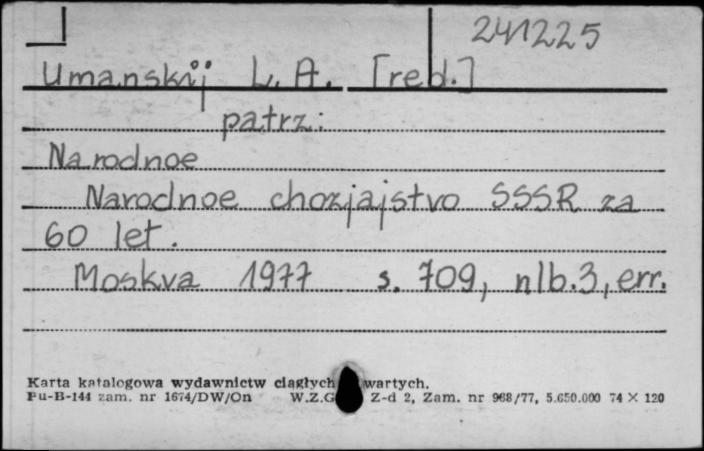 241225
Umanskij L. A. [red.]
patrz:
Narodnoe
Narodnoe chozjajstvo SSSR za
60 let.
Moskva 1977 s. 709, nlb. 3, err.
Karta katalogowa wydawnictw ciągłych wartych.
Pu-B-144 zam. nr 1674/DW/On W.Z.G Z-d 2, Zam. nr 968/77, 5.650.000 74 × 120